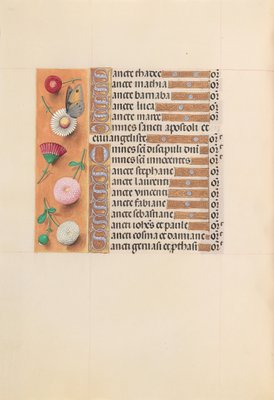 Sancte thadee or̄
Sancte mathia or̄
Sancte barnaba or̄
Sancte luca or̄
Sancte marce or̄
Omnes sancti apostoli et
euangeliste or̄
Omnes sc̄i discipuli dn̄i or̄
Omnes sc̄i innocentes or̄
Sancte stephane or̄
Sancte laurenti or̄
Sancte vincenti or̄
Sancte fabiane or̄
Sancte sebastiane or̄
Sancti ioh̄es et paule or̄
Sancti cosma et damiane or̄
Sancti geruasi et ꝓthasi or̄